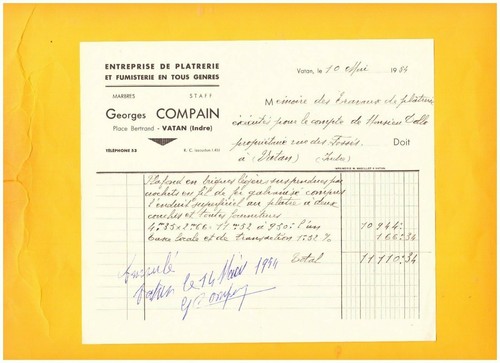 ENTREPRISE DE PLATRERIE
ET FUMISTERIE EN TOUS GENRES
MARBRES STAFF
Georges COMPAIN
Place Bertrand - VATAN (Indre)
TÉLÉPHONE 55
R. C. Issoudun
Vatan, le 10 Mai 1954
Mémoire des Travaux de plâtrerie
exécutés pour le compte de Monsieur
propriétaire rue des Fossés Doit
à Vatan) (Indre)
Plafond en briques légères suspendues par
crochets en fil de fer galvanisé compris
l'enduit superficiel au plâtre à deux
couches et toutes fournitures
4m35 x 2m66 = 11m52 à 950f l'un 10944f
Taxe locale et de transaction 1.52% 166f34
Total 11110f34
Acquitté
Vatan le 14 1954
G Compain